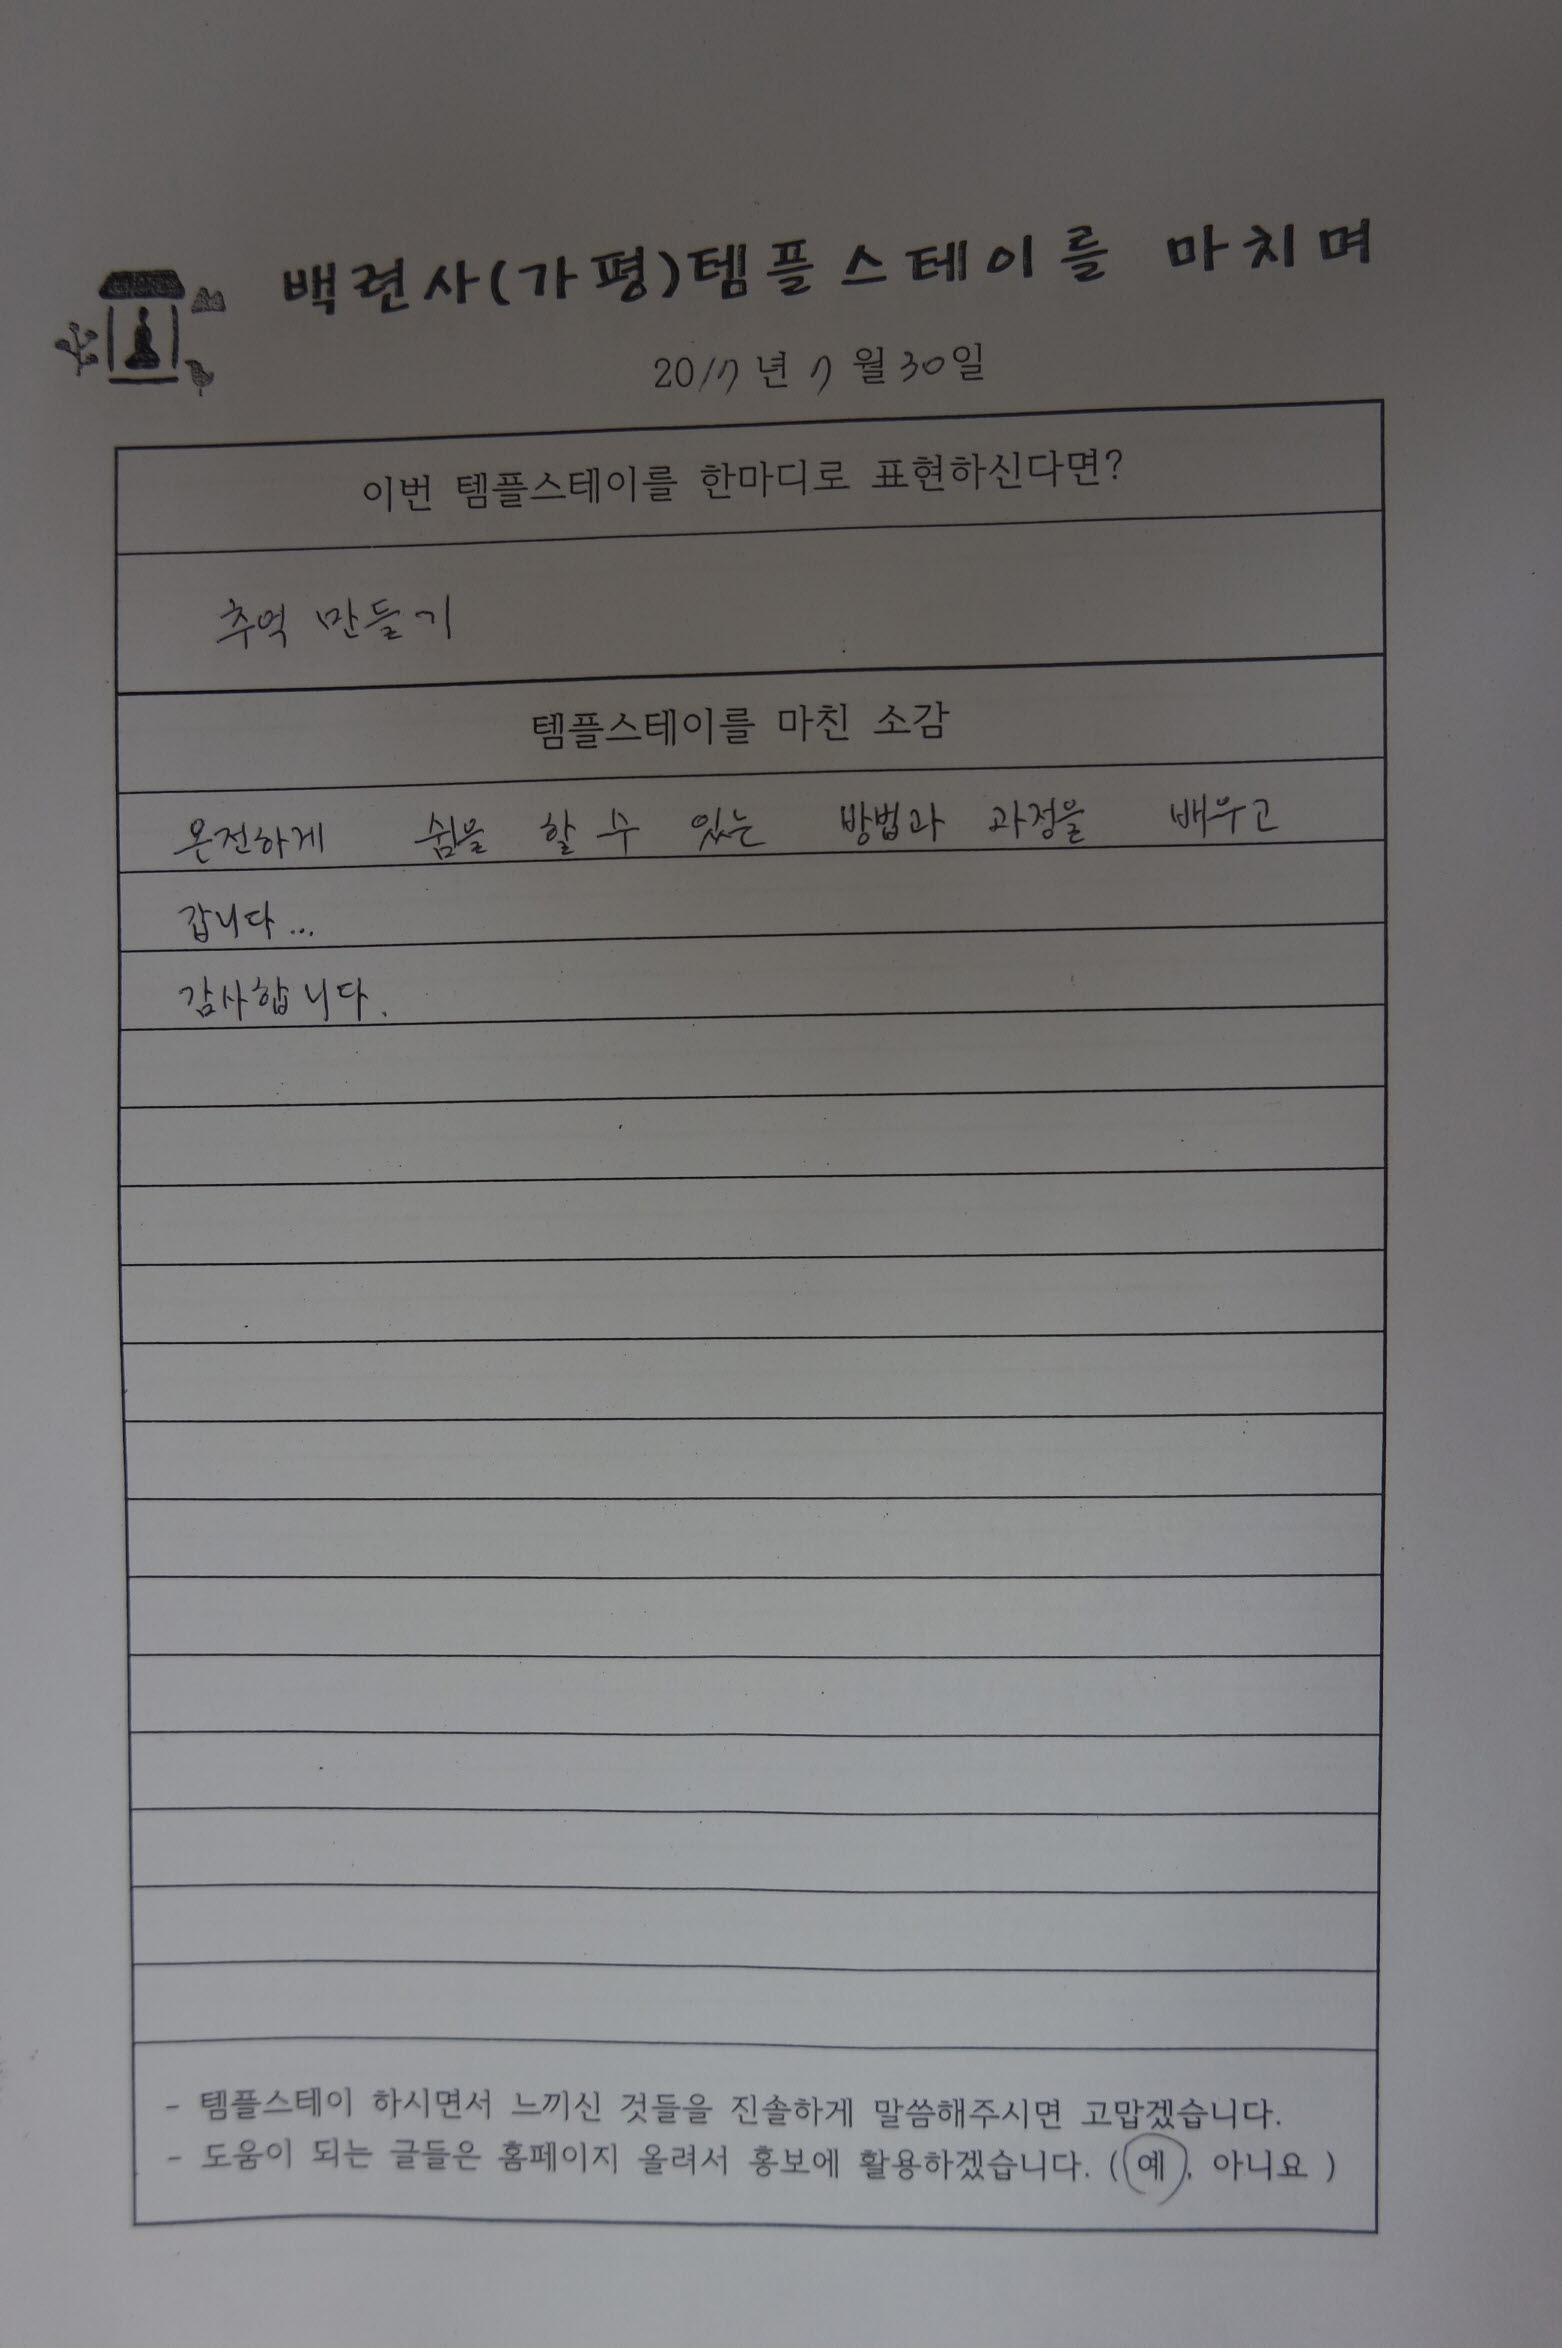 백련사(가평)템플스테이를 마치며
2017년 7월 30일
이번 템플스테이를 한마디로 표현하신다면?
추억 만들기
템플스테이를 마친 소감
온전하게 쉼을 할 수 있는 방법과 과정을 배우고
갑니다...
감사합니다.
- 템플스테이 하시면서 느끼신 것들을 진솔하게 말씀해주시면 고맙겠습니다.
- 도움이 되는 글들은 홈페이지 올려서 홍보에 활용하겠습니다. (예, 아니요 )